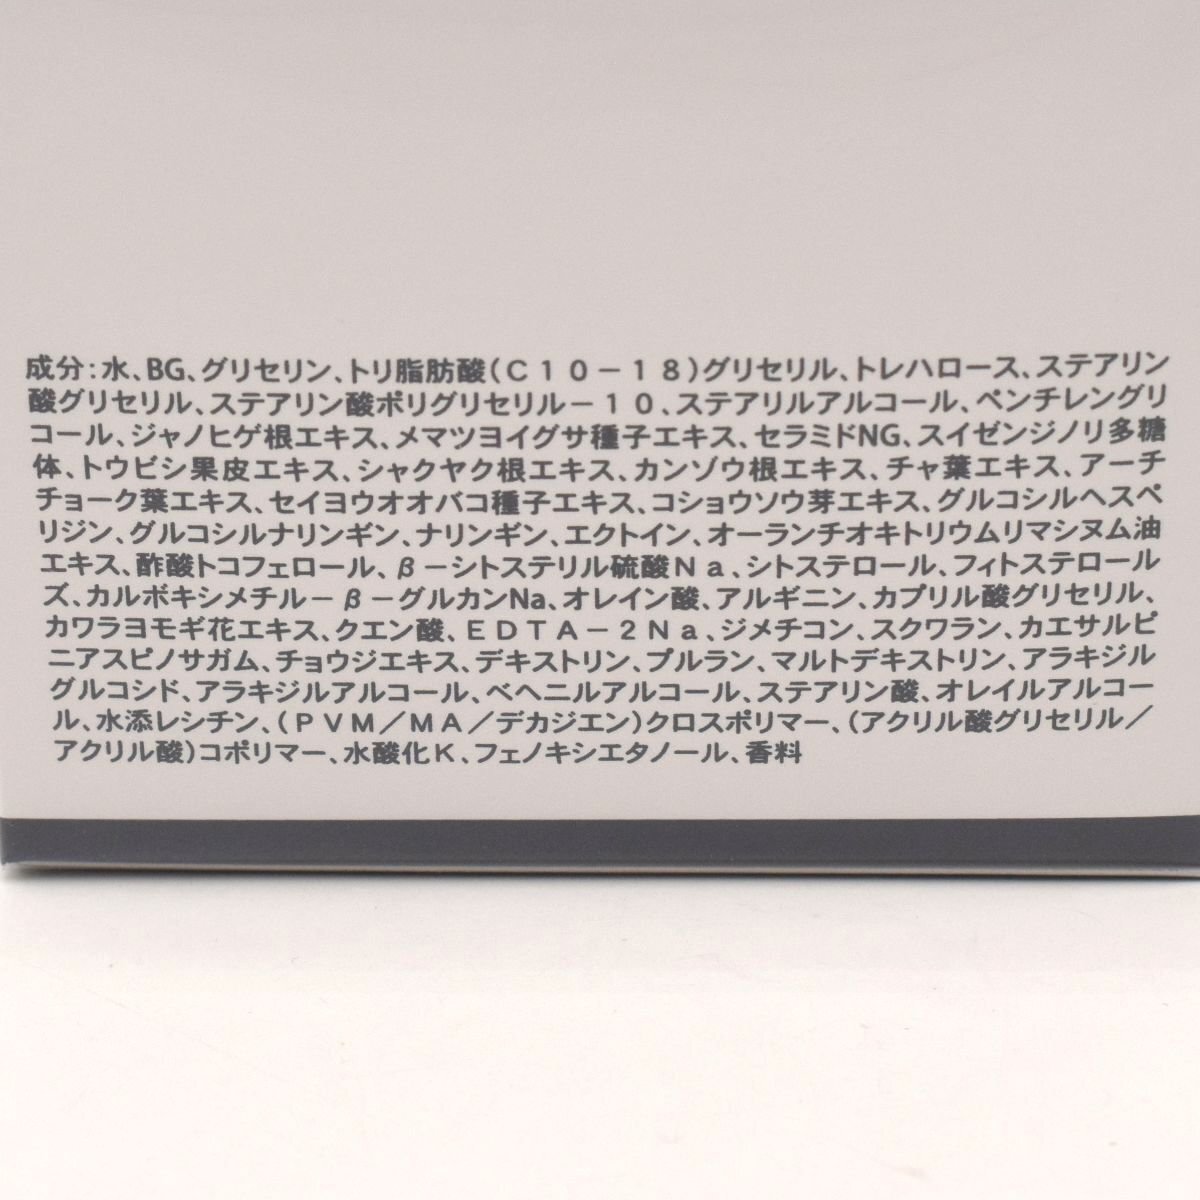 成分：水、BG、グリセリン、トリ脂肪酸（C１０－１８）グリセリル、トレハロース、ステアリン
酸グリセリル、ステアリン酸ポリグリセリル－１０、ステアリルアルコール、ペンチレングリ
コール、ジャノヒゲ根エキス、メマツヨイグサ種子エキス、セラミドNG、スイゼンジノリ多糖
体、トウビシ果皮エキス、シャクヤク根エキス、カンゾウ根エキス、チャ葉エキス、アーチ
チョーク葉エキス、セイヨウオオバコ種子エキス、コショウソウ芽エキス、グルコシルヘスペ
リジン、グルコシルナリンギン、ナリンギン、エクトイン、オーランチオキトリウムリマシヌム油
エキス、酢酸トコフェロール、β－シトステリル硫酸Ｎａ、シトステロール、フィトステロール
ズ、カルボキシメチル－β－グルカンNa、オレイン酸、アルギニン、カプリル酸グリセリル、
カワラヨモギ花エキス、クエン酸、ＥＤＴＡ－２Ｎａ、ジメチコン、スクワラン、カエサルピ
ニアスピノサガム、チョウジエキス、デキストリン、プルラン、マルトデキストリン、アラキジル
グルコシド、アラキジルアルコール、ベヘニルアルコール、ステアリン酸、オレイルアルコー
ル、水添レシチン、（ＰＶＭ／ＭＡ／デカジエン）クロスポリマー、（アクリル酸グリセリル／
アクリル酸）コポリマー、水酸化Ｋ、フェノキシエタノール、香料